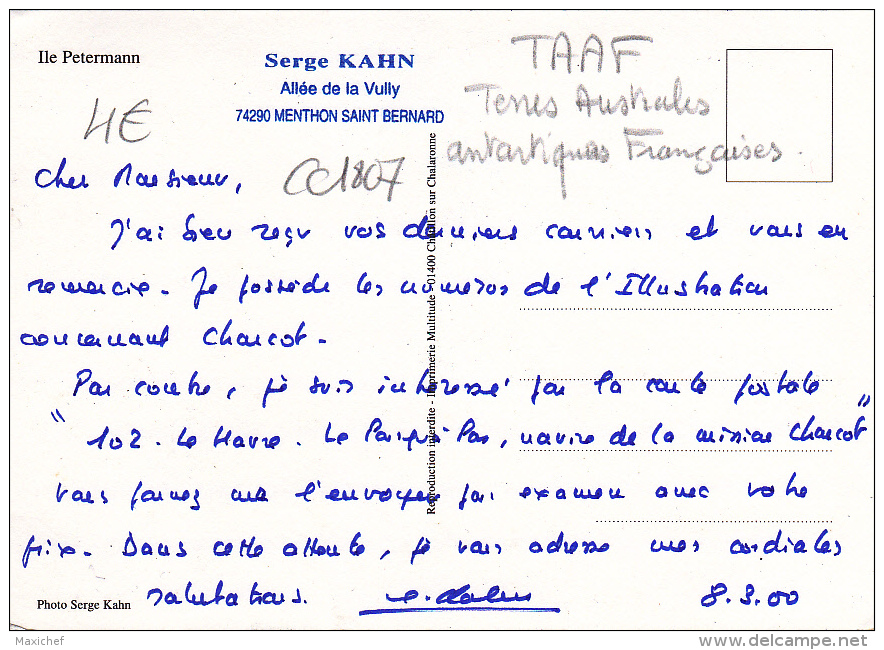 Ile Petermann
Serge KAHN
Allée de la Vully
74290 MENTHON SAINT BERNARD
TAAF
Terres Australes
antartiques Françaises.
4€
CC1807
Cher Monsieur,
J'ai bien reçu vos derniers courriers et vous en
remercie. Je possède les numéros de l'Illustration
concernant Charcot.
Par contre, je suis intéressé par la carte postale
"102. Le Havre. Le Pourquoi Pas, navire de la mission Charcot"
Vous pouvez me l'envoyer pour examen avec votre
prix. Dans cette attente, je vous adresse mes cordiales
salutations.
8.3.00
Reproduction interdite - Imprimerie Multitude - 01400 Châtillon sur Chalaronne
Photo Serge Kahn
Maxichef
delcampe.net